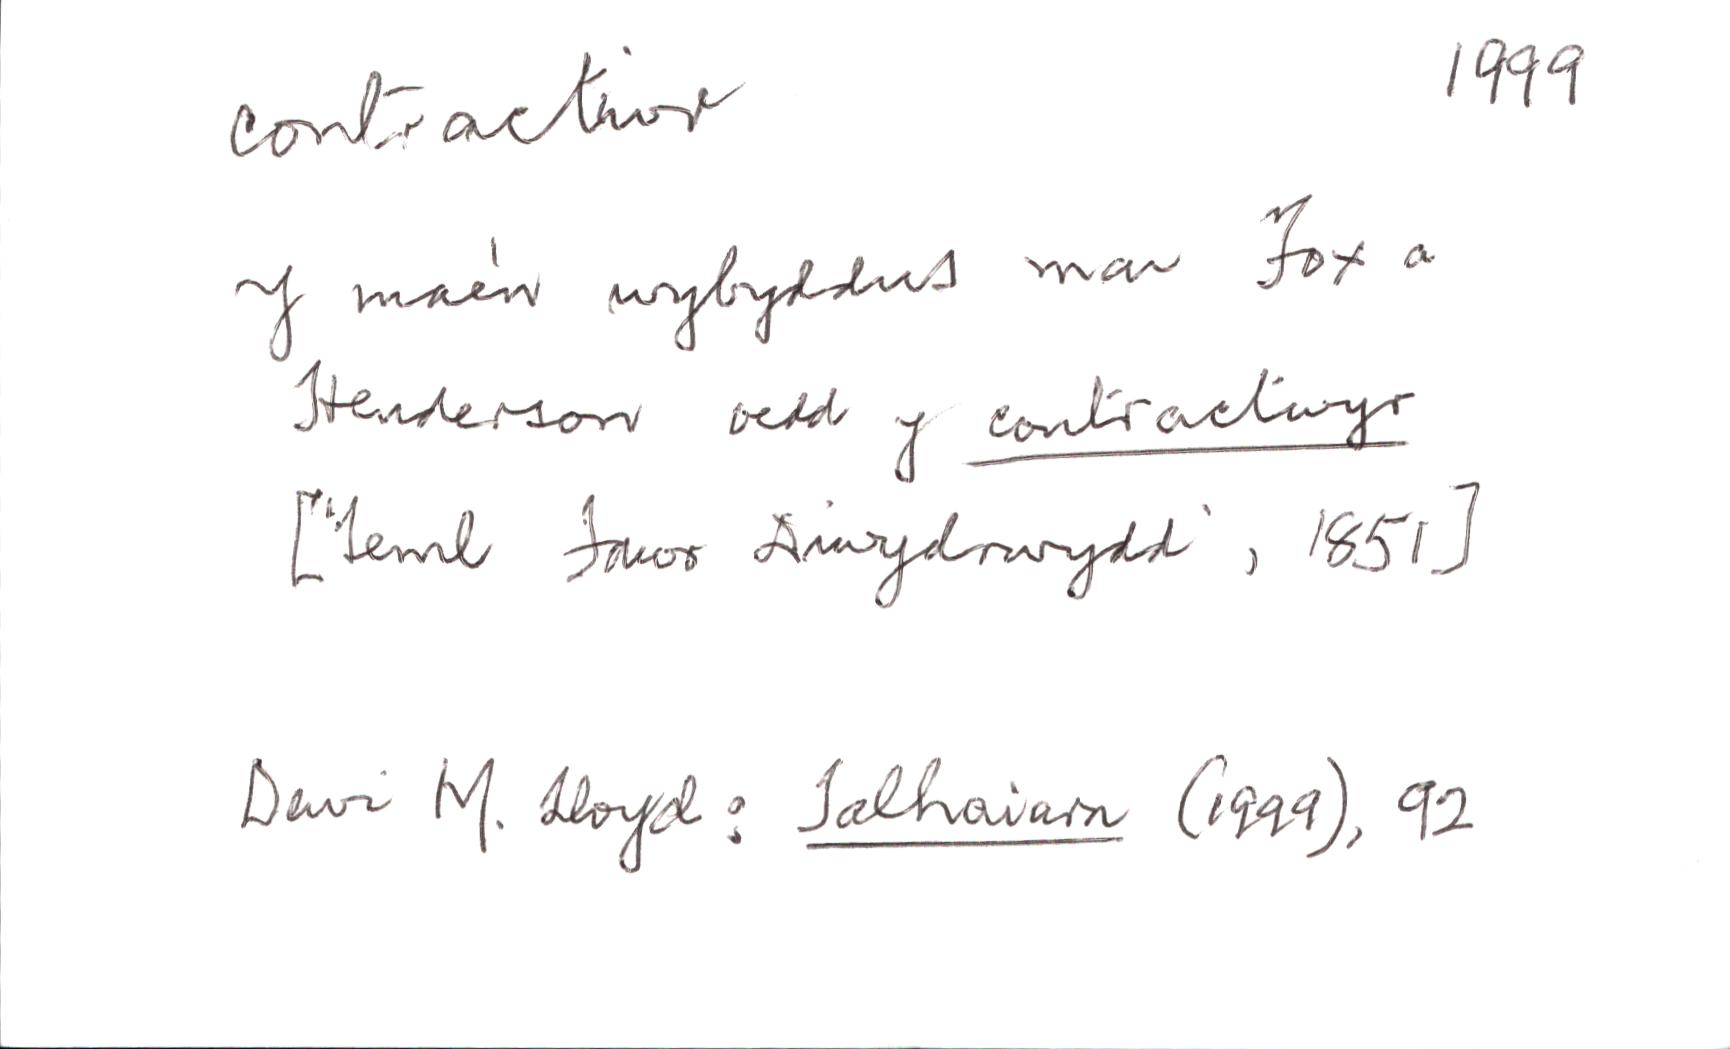 contractiwr 1999
y mae'n wybyddus mai Fox a
Henderson oedd y contractwyr
['Teml Fawr Diwydrwydd', 1851]
Dewi M. Lloyd: Talhaiarn (1999), 92